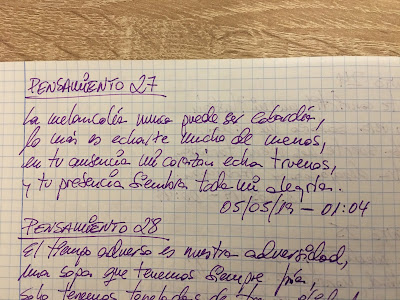 PENSAMIENTO 27
La melancolía nunca puede ser cobardía,
lo más es echarte mucho de menos,
en tu ausencia mi corazón echa truenos,
y tu presencia siembra toda mi alegría.
05/05/19 – 01:04
PENSAMIENTO 28
El tiempo adverso es nuestra adversidad,
una sopa que tenemos siempre fría,
solo tenemos toneladas de